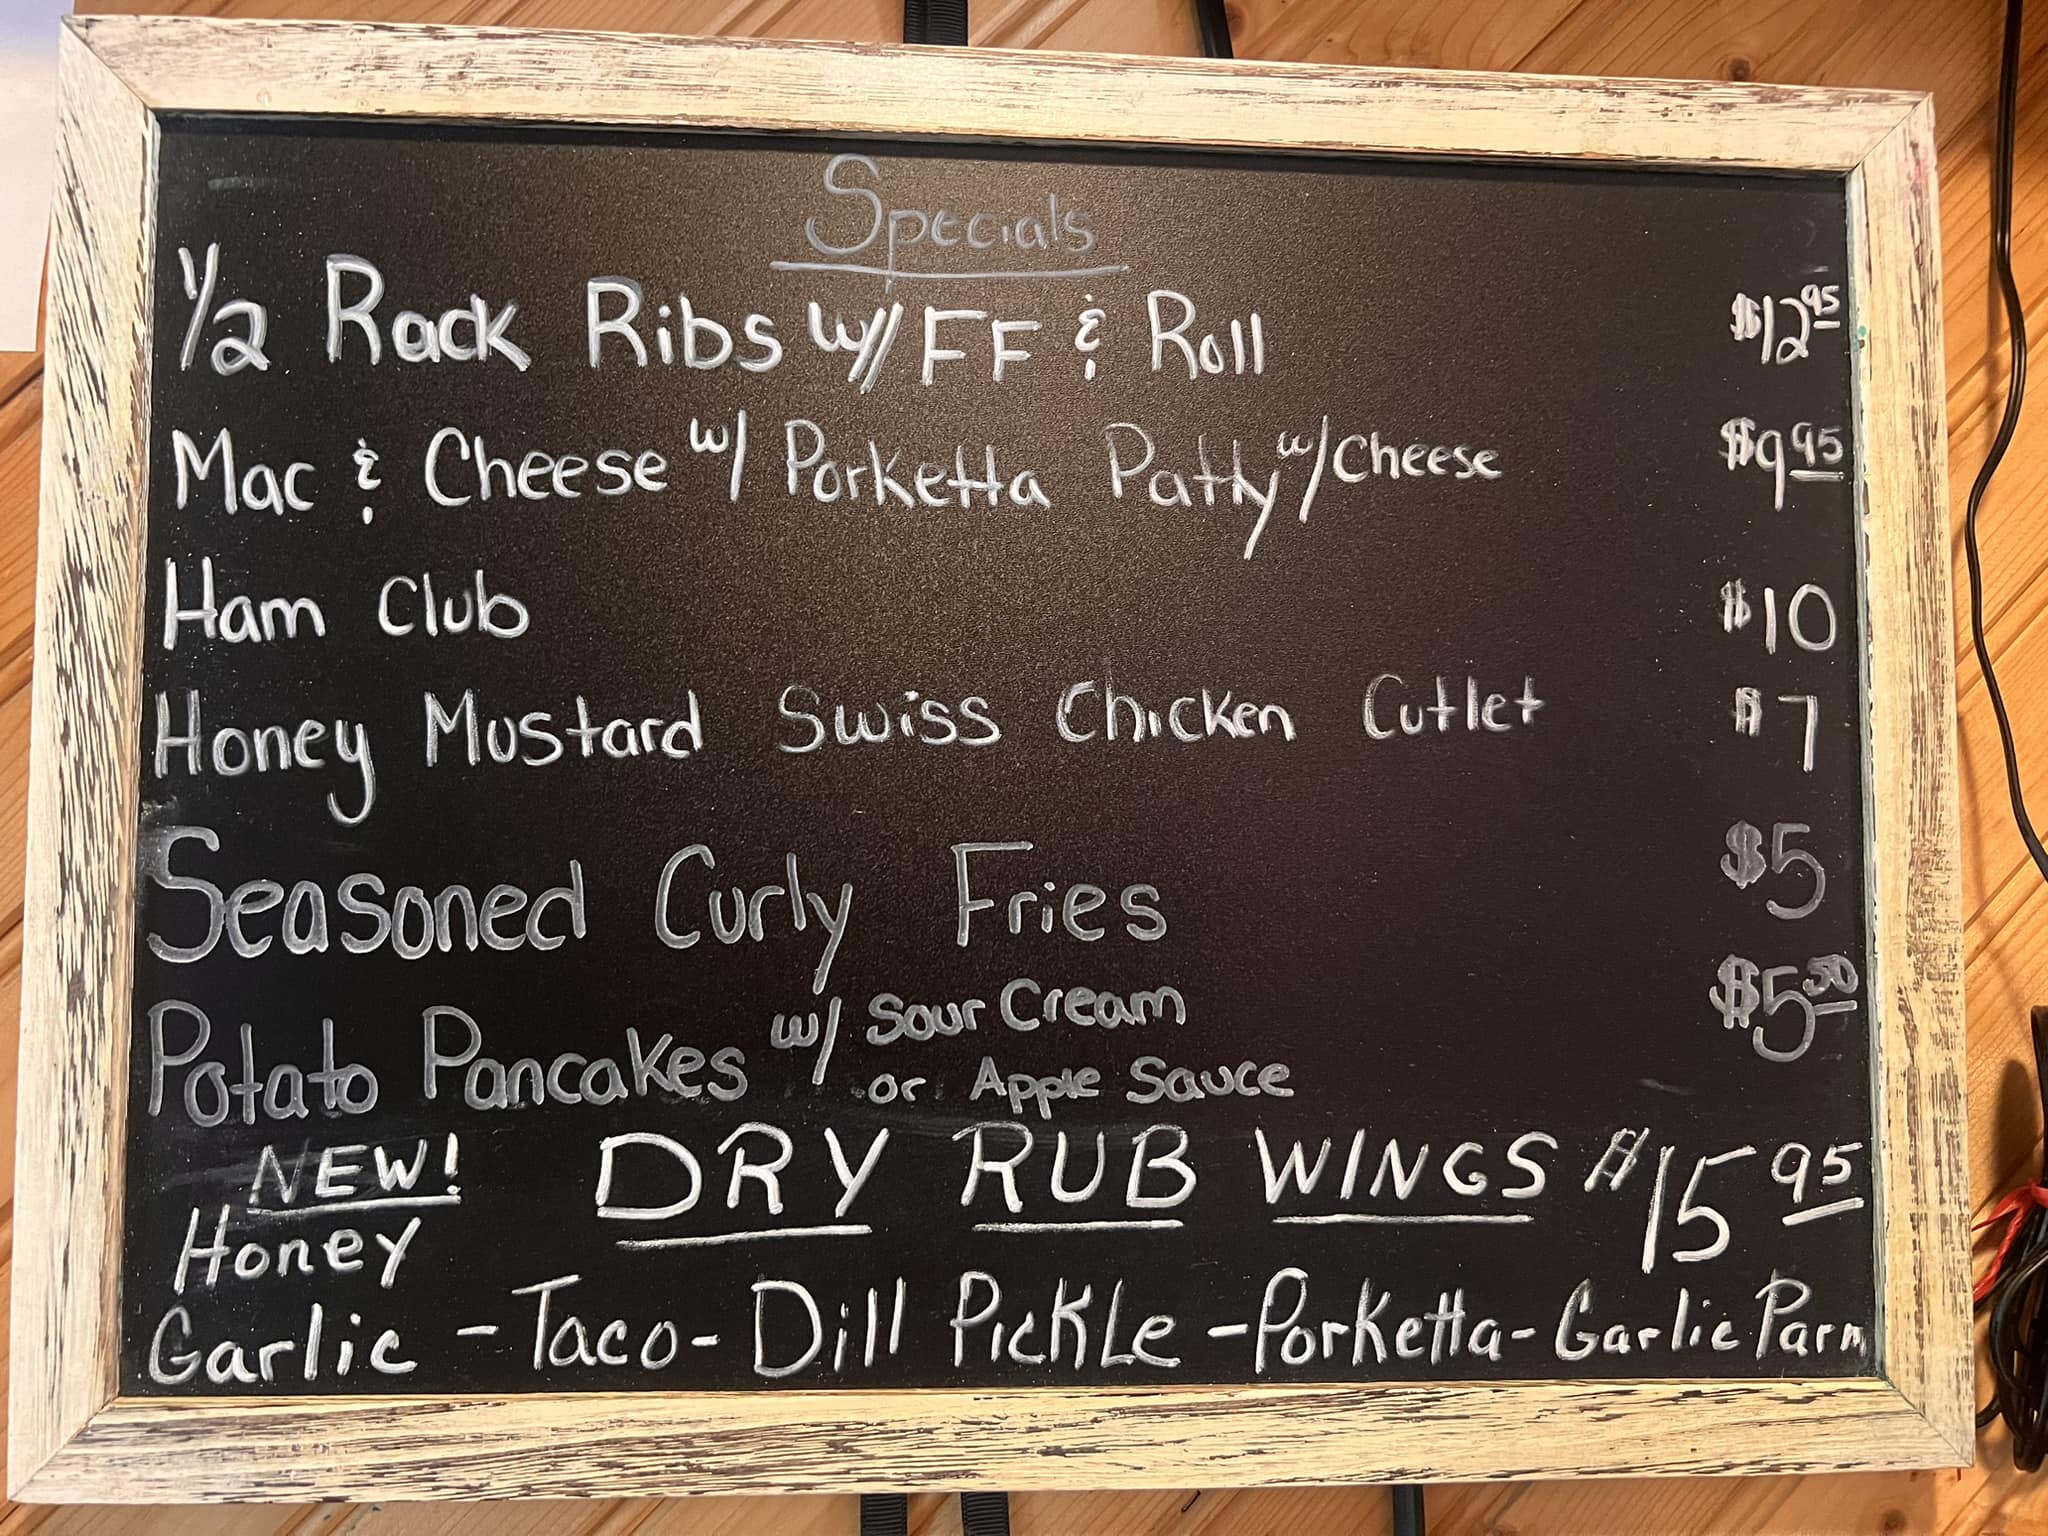 Specials
1/2 Rack Ribs w/ FF & Roll $12.95
Mac & Cheese w/ Porketta Patty w/ Cheese $9.95
Ham Club $10
Honey Mustard Swiss Chicken Cutlet $7
Seasoned Curly Fries $5
Potato Pancakes w/ Sour Cream $5.50
or Apple Sauce
NEW! DRY RUB WINGS $15.95
Honey
Garlic - Taco - Dill Pickle - Porketta - Garlic Parm